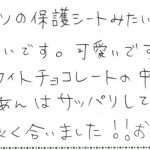 ソの保護シートみたい
いです。可愛いです
ワイトチョコレートの中
あんはサッパリして
く合いました!!お